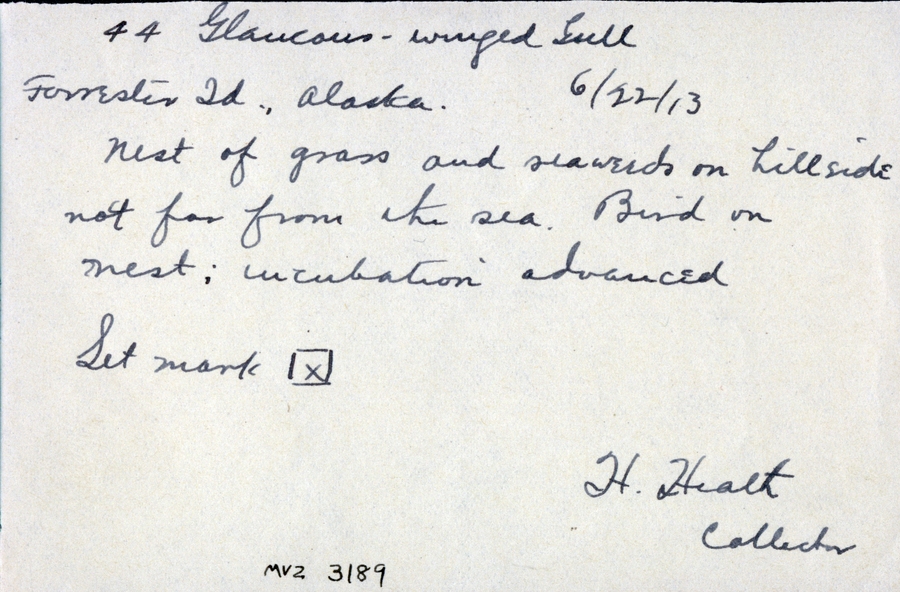 44 Glaucous-winged Gull
Forrester Id., Alaska. 6/22/13
Nest of grass and seaweeds on hillside
not far from the sea. Bird on
nest; incubation advanced
Set mark x
H. Heath
Collector
MVZ 3189